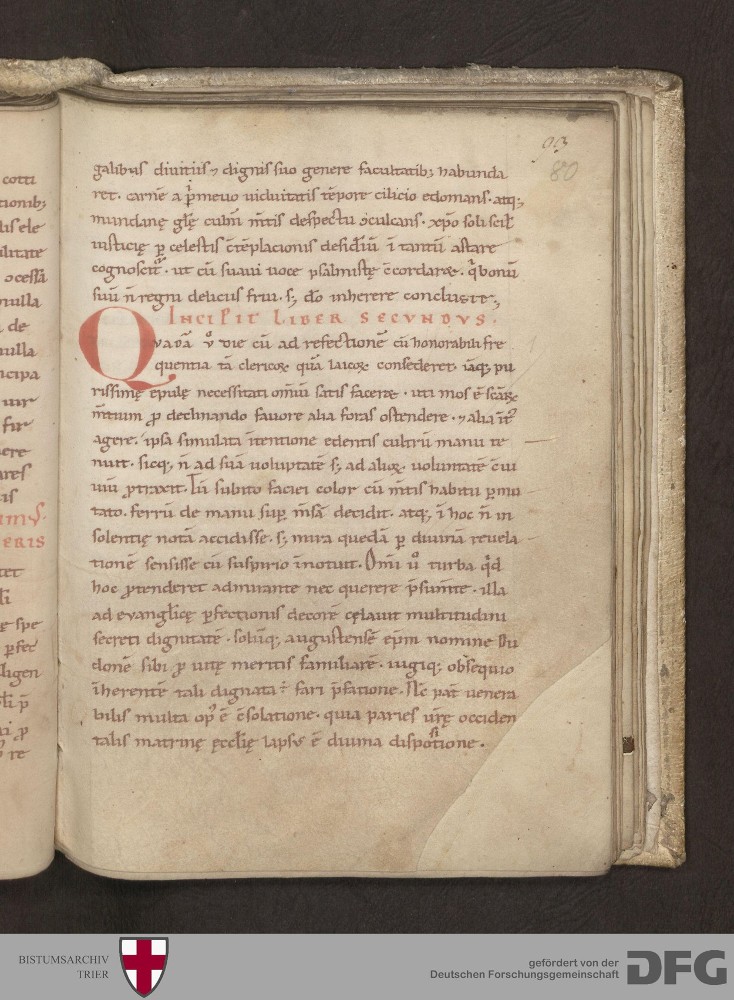 93
80
galibus diuitiis ⁊ dignis suo genere facultatib; habunda
ret. carnē a p̄meuo uiduitatis tēpore cilicio edomans. atq;
mundanę glę̄ culm̄ m̄tis despectu ꝯculcans. xp̄o soli scil̄
iusticię ꝑ celestis ꝯtēplacionis desideriū ī tantū astare
cognoscit᷑. ut cū suaui uoce psalmistę ꝯcordaret. q̄ bonū
suū n̄ regni deliciis frui. s; dō inherere conclusit.
INCIPIT LIBER SECVNDVS.
Quadā ū die cū ad refectionē cū honorabili fre
quentia tā clericoꝝ quā laicoꝝ consederet. iāq; pu
rissimę epulę necessitati om̄iū satis facerēt. uti mos ē sc̄aꝝ
m̄tium ꝓ declinando fauore alia foras ostendere. ⁊ alia īt᷒
agere. ipsa simulata ītentione edentis cultrū manu te
nuit. sicq; n̄ ad suā voluptatē s; ad alioꝝ. uoluntatē ꝯui
uiū ꝓtraxit. Tū subito faciei color cū m̄tis habitu ꝑmu
tato. ferrū de manu sup̄ m̄sā decidit. atq; ī hoc n̄ in
solentię notā accidisse. s; mira quedā ꝑ diuinā reuela
tionē sensisse cū suspirio īnotuit. Om̄i ū turba qd̄
hoc ꝓtenderet admirante nec querere p̄sum̄te. illa
ad euanglicę ꝑfectionis decorē celauit multitudini
secreti dignitatē. soliūq; augustensē ep̄m nomine Lu
donē sibi ꝓ uitę meritis familiarē. iugiq; obsequio
īherentē tali dignata ē fari p̄fatione. Nc̄ pat̄ uenera
bilis multa op᷒ ē ꝯsolatione. quia paries ur̄ę occiden
talis matrinę ęccl̄ię lapsus ē diuina dispositione.
cotti
tionib;
ulla
de
ulla
ncipa
uir
fir
ERIS
spe
ꝑfec
ligen
p̄
ꝓ
re
BISTUMSARCHIV
TRIER
gefördert von der
Deutschen Forschungsgemeinschaft
DFG